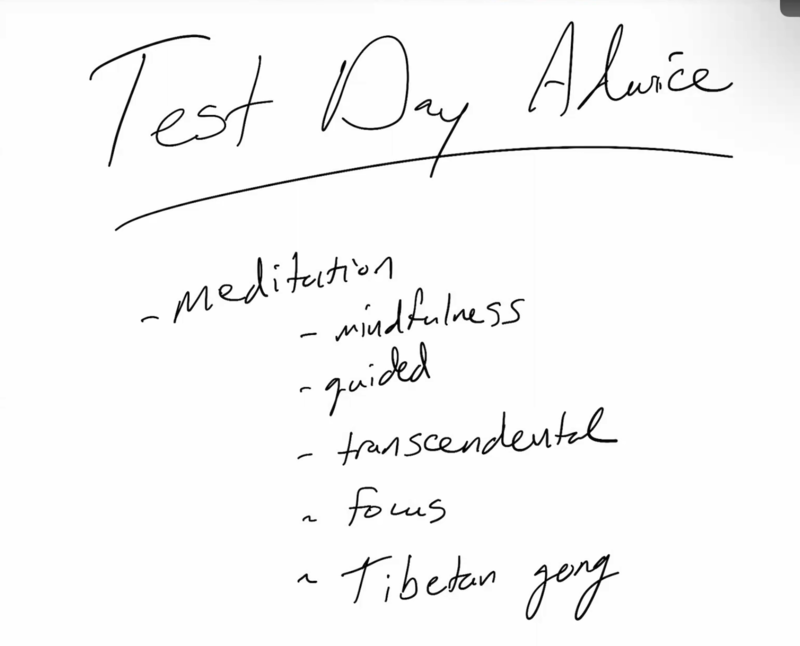 Test Day Advice
- meditation
- mindfulness
- guided
- transcendental
~ focus
~ Tibetan gong